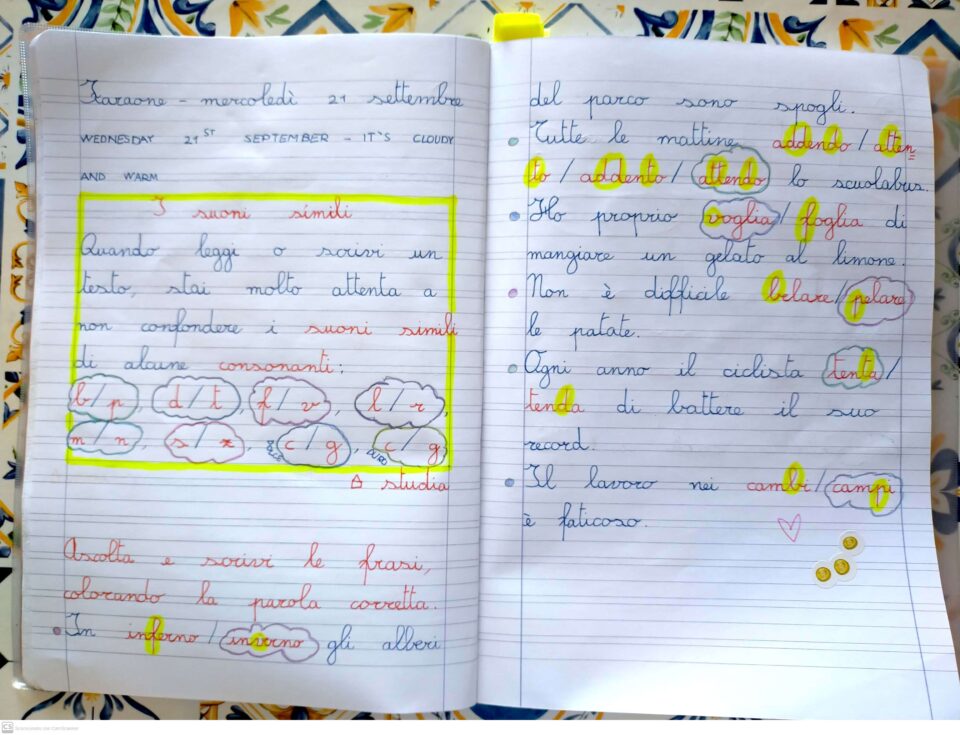 Karaone - mercoledì 21 settembre
WEDNESDAY 21ST SEPTEMBER - IT'S CLOUDY
AND WARM
I suoni simili
Quando leggi o scrivi un
testo, stai molto attenta a
non confondere i suoni simili
di alcune consonanti:
b/p, d/t, f/v, l/r,
m/n, s/z, DOLCE c/g, DURO c/g
studia
Ascolta e scrivi le frasi,
colorando la parola corretta.
In inferno / inverno gli alberi
del parco sono spogli.
Tutte le mattine addendo / atten=
to / addento / attendo lo scuolabus.
Ho proprio voglia / foglia di
mangiare un gelato al limone.
Non è difficile belare / pelare
le patate.
Ogni anno il ciclista tenta /
tenda di battere il suo
record.
Il lavoro nei cambi / campi
è faticoso.
CS